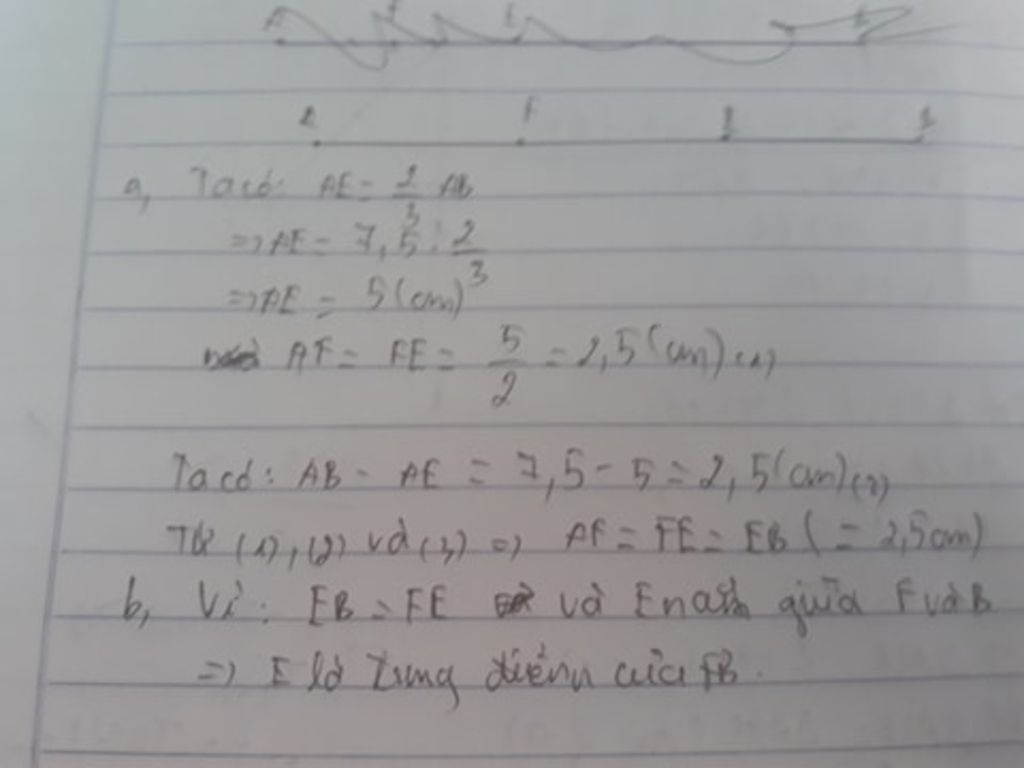 A F E B
a, Ta có: AE = 2/3 AB
=> AE = 7,5 : 2/3
=> AE = 5 (cm)
AF = FE = 5/2 = 2,5 (cm) (1)
Ta có: AB - AE = 7,5 - 5 = 2,5 (cm) (2)
Từ (1), (2) và (3) => AF = FE = EB ( = 2,5cm)
b, Vì: EB = FE và E nằm giữa F và B
=> E là trung điểm của FB.